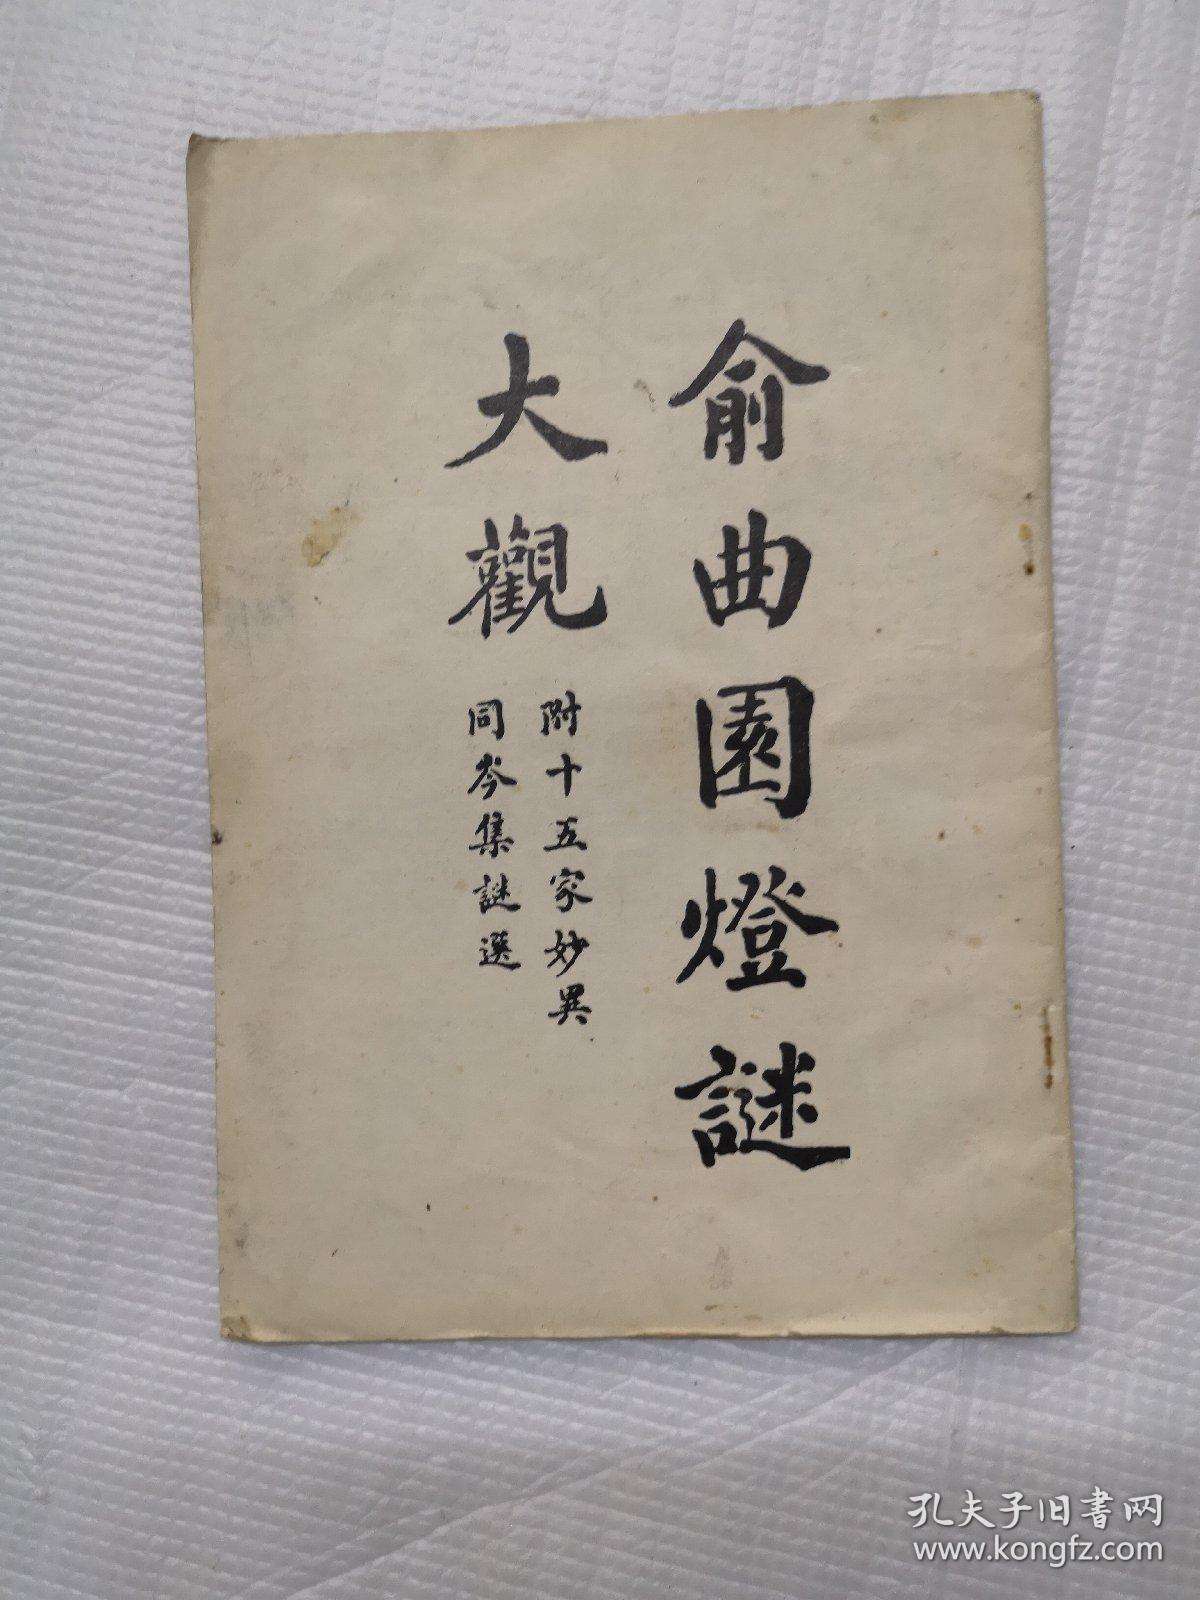 俞曲園燈謎
大觀
附十五家妙異
同岑集謎選
孔夫子旧書网
www.kongfz.com